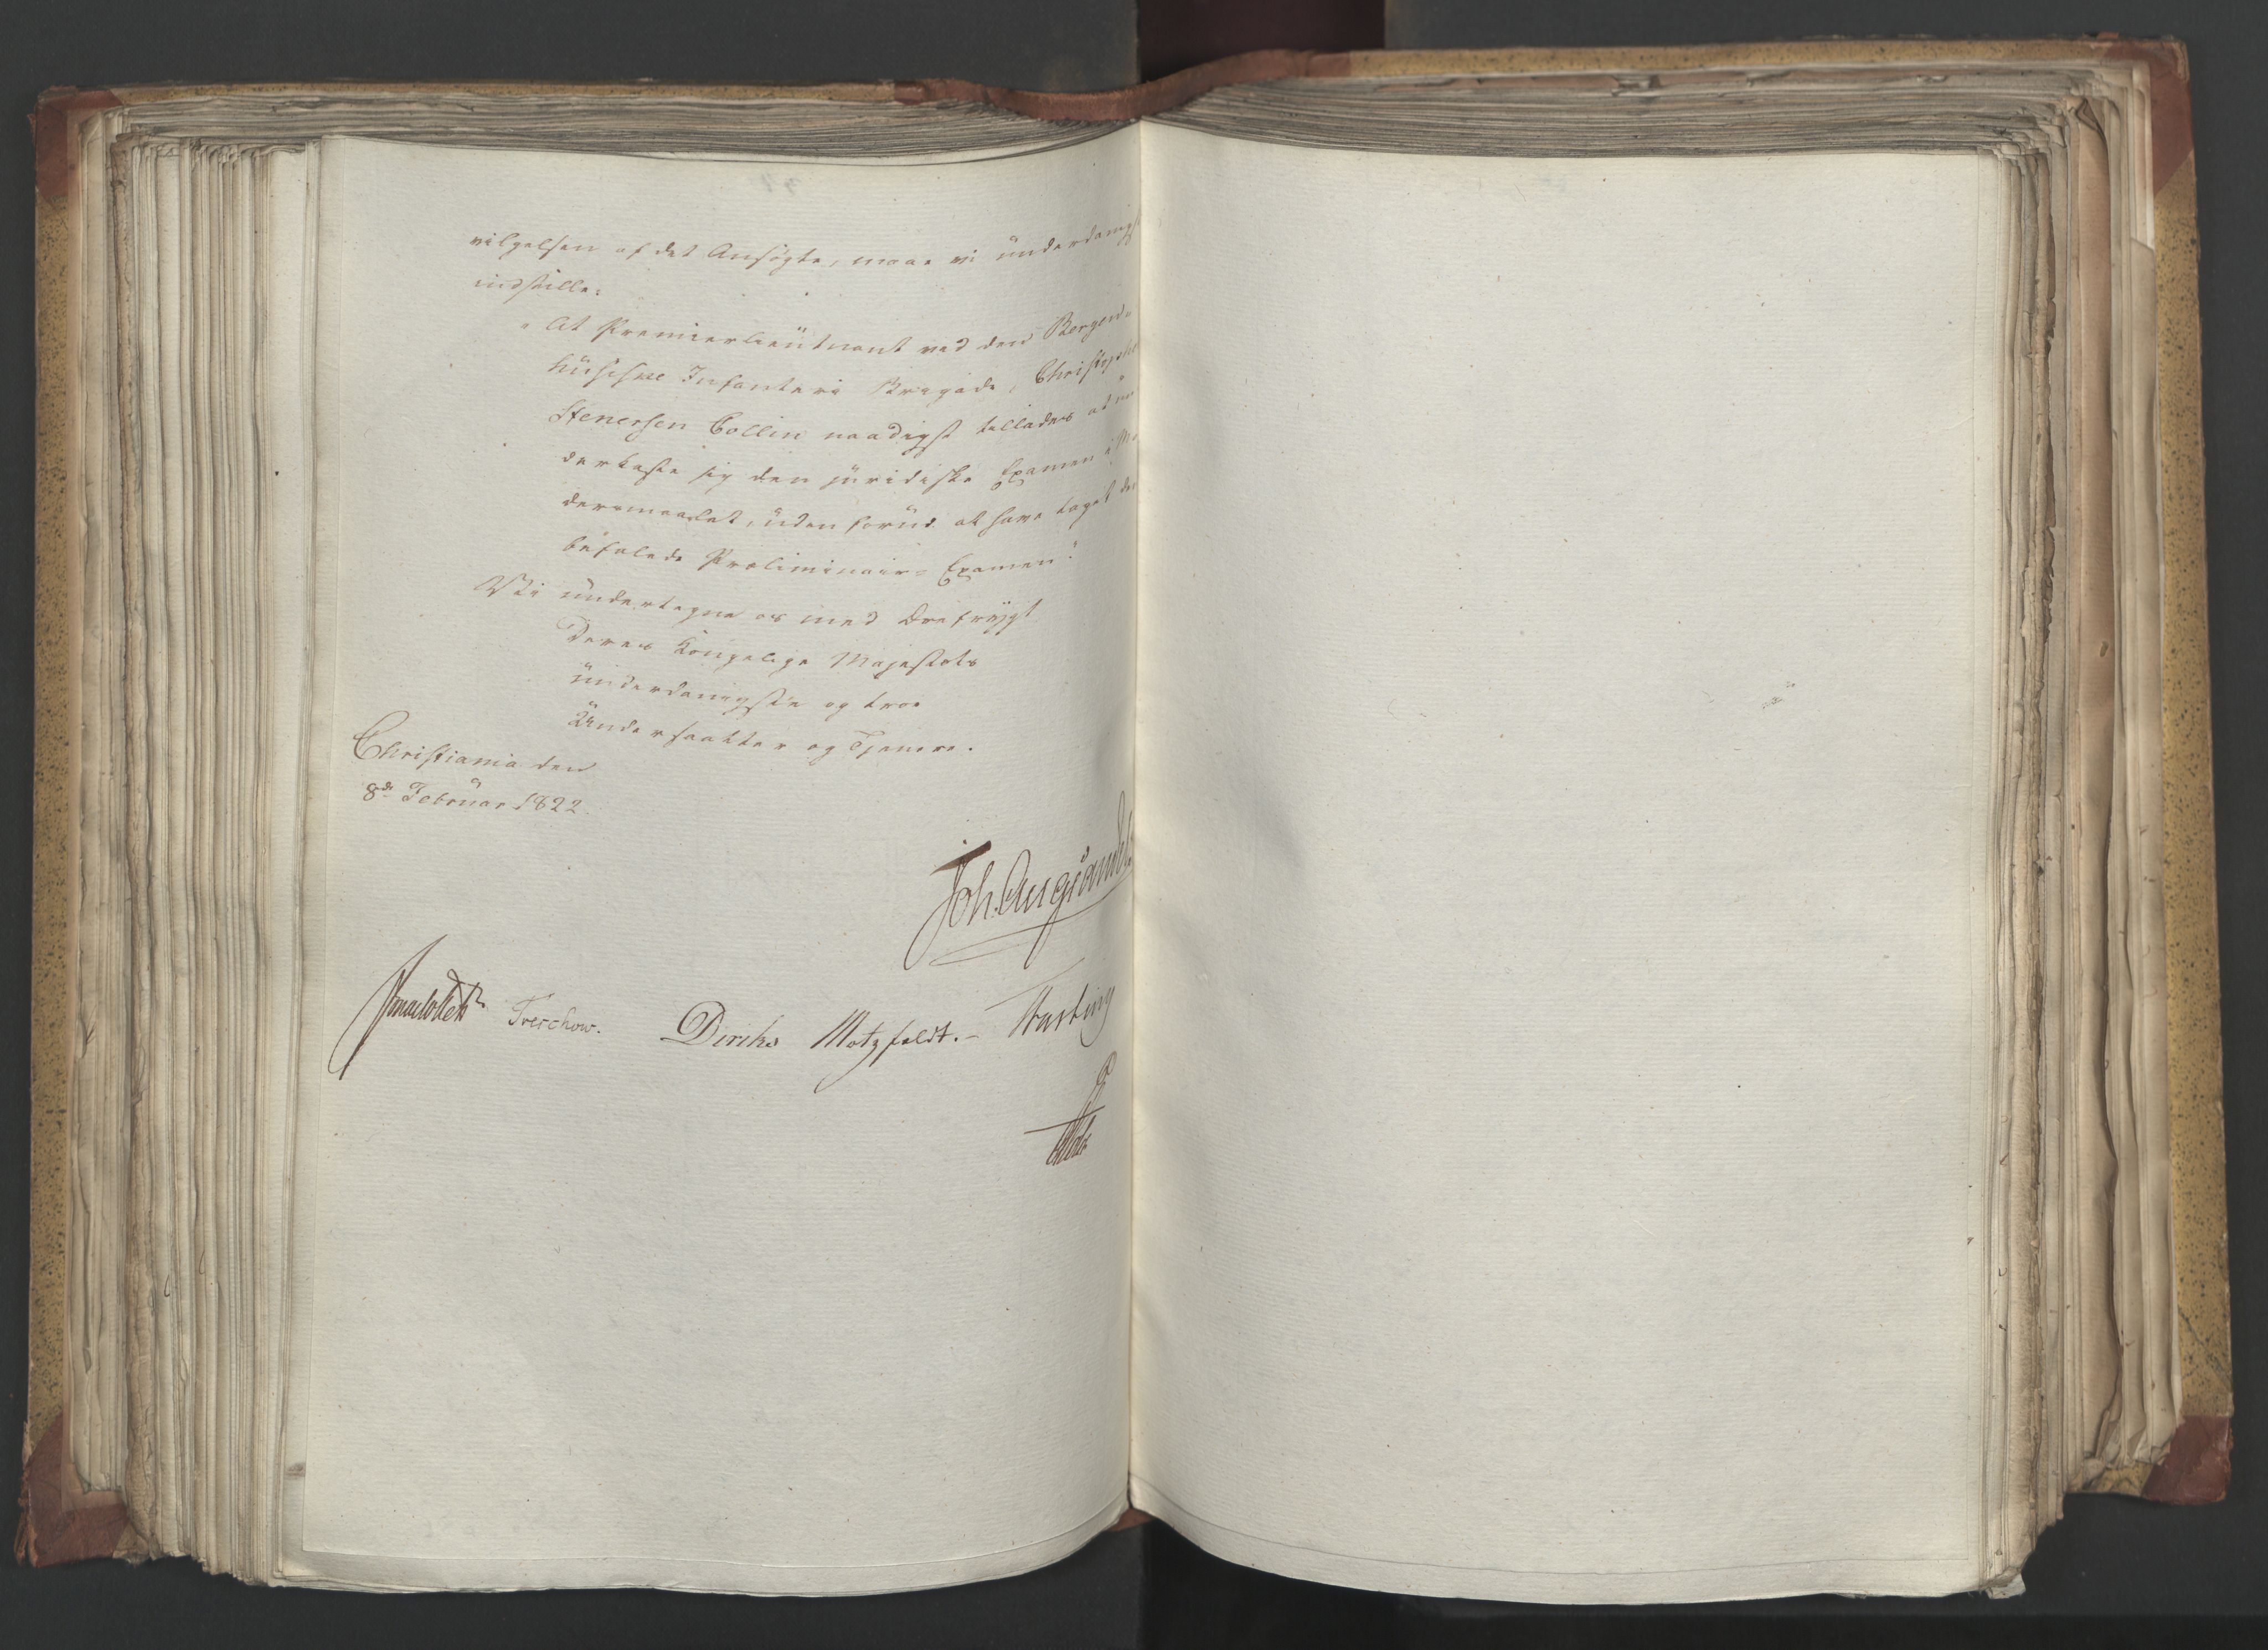 vilgelsen af det Ansøgte, maae vi underdanigst
indstille:
"At Premierlieutnant ved den Bergen-
husiske Infanteri Brigade, Christopher
Stenersen Collin naadigst tillades at un-
derkaste sig den juridiske Examen i Mo-
dersmaalet, uden forud at have taget den
befalede Præliminair-Examen."
Vi undertegne os med Ærefrygt
Deres Kongelige Majestæts
underdanigste og troe
Undersaatter og Tjenere.
Christiania den
8de Februar 1822.
Joh. Aug. Sandels
Treschow.
Diriks Motzfeldt.- Fasting